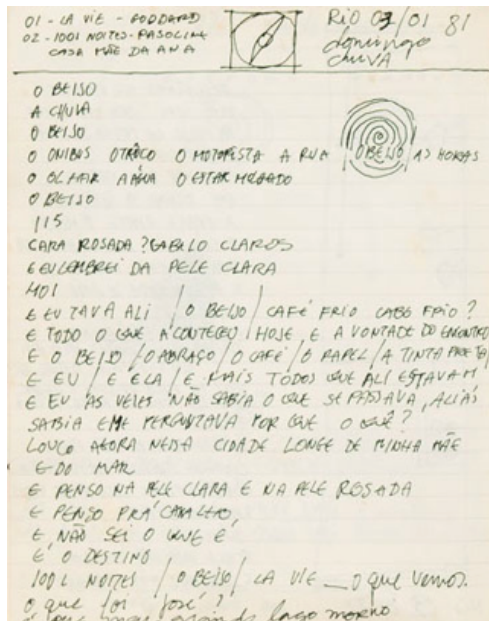 01 - LA VIE - GODDARD
02 - 1001 NOITES - PASOLINI
CASA MÃE DA ANA
RIO 03/01 81
domingo
CHUVA
O BEIJO
A CHUVA
O BEIJO
O ONIBUS O TROCO O MOTORISTA A RUA / O BEIJO / 13 HORAS
O OLHAR A AGUA O ESTAR MOLHADO
O BEIJO
115
CARA ROSADA? CABELO CLAROS
E EU LEMBREI DA PELE CLARA
401
E EU TAVA ALI / O BEIJO / CAFÉ FRIO CABO FRIO?
E TODO O QUE ACONTECEU / HOJE E A VONTADE DO ENCONTRO
E O BEIJO / O ABRAÇO / O CAFÉ / O PAPEL / A TINTA PRETA /
E EU / E ELA / E MAIS TODOS QUE ALI ESTAVAM
E EU AS VEZES NÃO SABIA O QUE SE PASSAVA, ALIÁS
SABIA E ME PERGUNTAVA POR QUE O QUÊ?
LOUCO AGORA NESSA CIDADE LONGE DE MINHA MÃE
E DO MAR
E PENSO NA PELE CLARA E NA PELE ROSADA
E PENSO PRÁ CARALHO,
E NÃO SEI O QUE É
E O DESTINO
1001 NOITES / O BEIJO / LA VIE _ O que vemos.
O que foi José?
lago morno